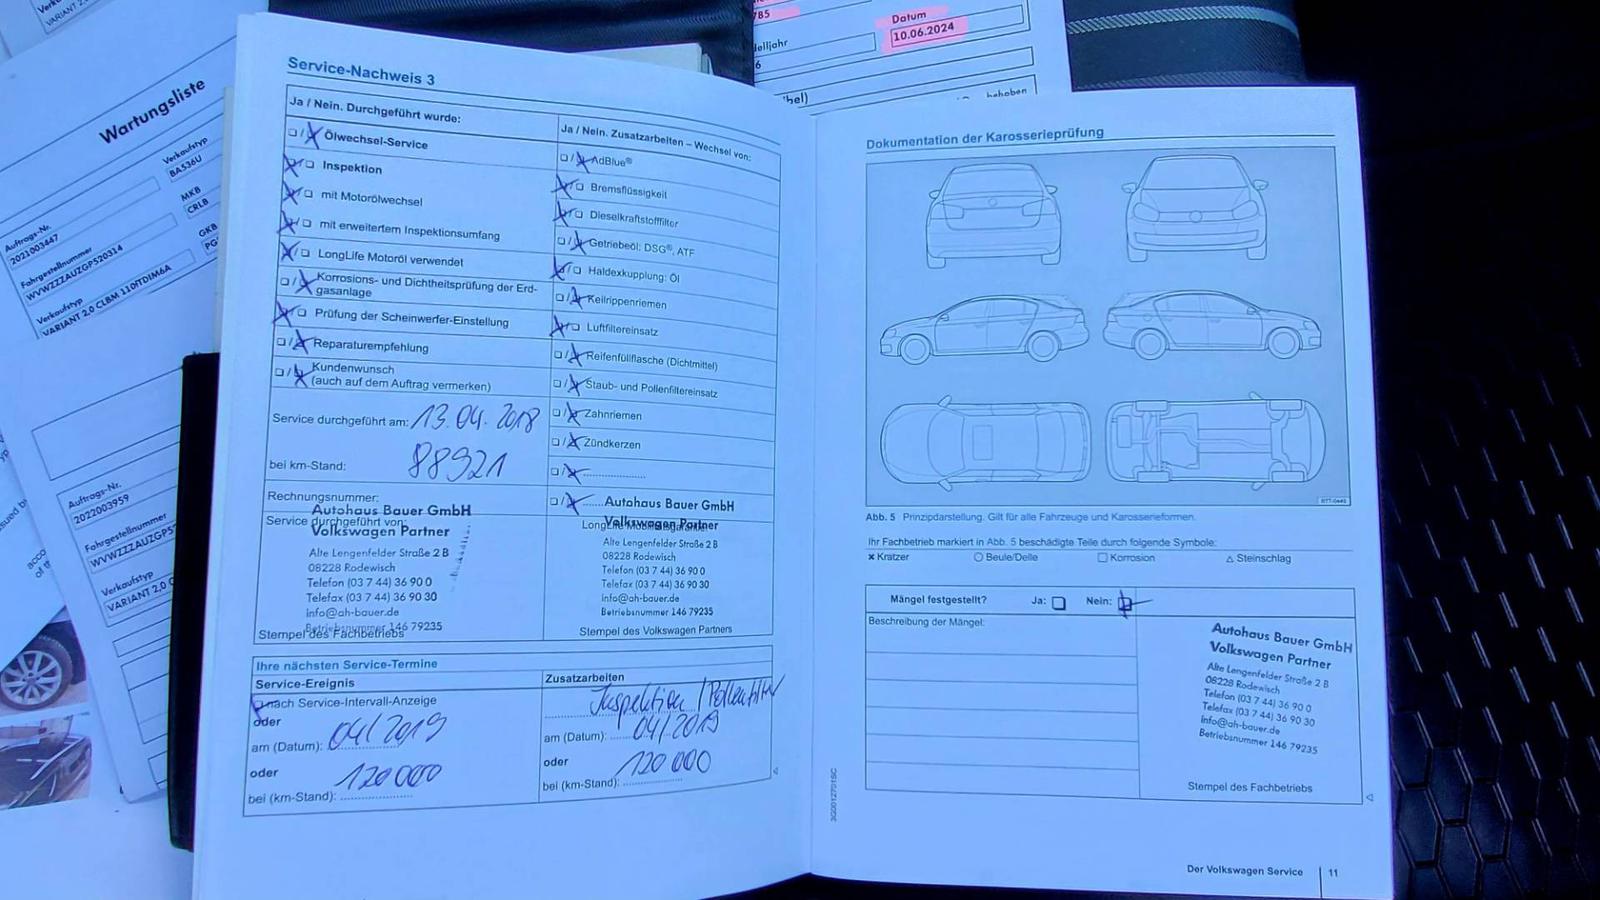 Wartungsliste
Verkaufstyp
BA536U
Auftrags-Nr.
2021003447
MKB
CRLB
Fahrgestellnummer
WVWZZZAUZGP520314
GKB
Verkaufstyp
VARIANT 2.0 CLBM 110ITDIM6A
Auftrags-Nr.
2022003959
Fahrgestellnummer
Verkaufstyp
VARIANT 2,0
785
Datum
10.06.2024
6
behoben
Service-Nachweis 3
Ja / Nein. Durchgeführt wurde:
Ölwechsel-Service
Inspektion
mit Motorölwechsel
mit erweitertem Inspektionsumfang
LongLife Motoröl verwendet
Korrosions- und Dichtheitsprüfung der Erd-
gasanlage
Prüfung der Scheinwerfer-Einstellung
Reparaturempfehlung
Kundenwunsch
(auch auf dem Auftrag vermerken)
Service durchgeführt am: 13.04.2018
bei km-Stand: 88921
Rechnungsnummer:
Autohaus Bauer GmbH
Service durchgeführt von:
Volkswagen Partner
Alte Lengenfelder Straße 2 B
08228 Rodewisch
Telefon (03 7 44) 36 90 0
Telefax (03 7 44) 36 90 30
info@ah-bauer.de
Betriebsnummer 146 79235
Stempel des Fachbetriebs
Ja / Nein. Zusatzarbeiten – Wechsel von:
AdBlue®
Bremsflüssigkeit
Dieselkraftstofffilter
Getriebeöl: DSG®, ATF
Haldexkupplung: Öl
Keilrippenriemen
Luftfiltereinsatz
Reifenfüllflasche (Dichtmittel)
Staub- und Pollenfiltereinsatz
Zahnriemen
Zündkerzen
Autohaus Bauer GmbH
Volkswagen Partner
Alte Lengenfelder Straße 2 B
08228 Rodewisch
Telefon (03 7 44) 36 90 0
Telefax (03 7 44) 36 90 30
info@ah-bauer.de
Betriebsnummer 146 79235
Stempel des Volkswagen Partners
Ihre nächsten Service-Termine
Service-Ereignis
nach Service-Intervall-Anzeige
oder
am (Datum): 04/2019
oder
120 000
bei (km-Stand):
Zusatzarbeiten
Inspektion / Pollenfilter
am (Datum): 04/2019
oder
120 000
bei (km-Stand):
Dokumentation der Karosserieprüfung
Abb. 5 Prinzipdarstellung. Gilt für alle Fahrzeuge und Karosserieformen.
Ihr Fachbetrieb markiert in Abb. 5 beschädigte Teile durch folgende Symbole:
× Kratzer ○ Beule/Delle □ Korrosion △ Steinschlag
Mängel festgestellt? Ja: Nein:
Beschreibung der Mängel:
Autohaus Bauer GmbH
Volkswagen Partner
Alte Lengenfelder Straße 2 B
08228 Rodewisch
Telefon (03 7 44) 36 90 0
Telefax (03 7 44) 36 90 30
info@ah-bauer.de
Betriebsnummer 146 79235
Stempel des Fachbetriebs
Der Volkswagen Service 11